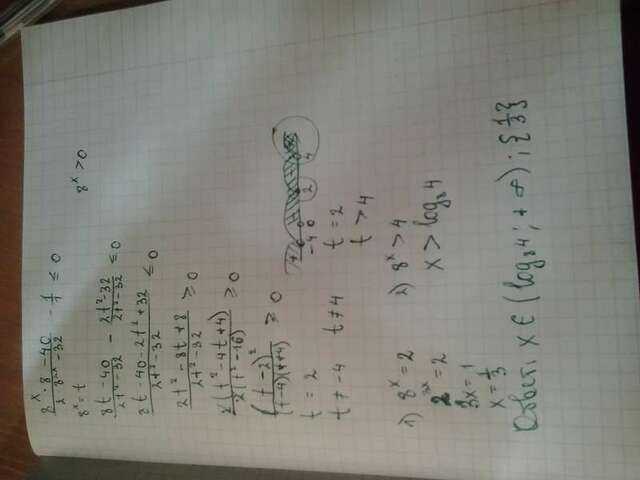 (8^x · 8 - 40)/(2 · 8^{2x} - 32) - 1/1 ≤ 0
8^x = t      8^x > 0
(8t - 40)/(2t² - 32) - (2t² - 32)/(2t² - 32) ≤ 0
(8t - 40 - 2t² + 32)/(2t² - 32) ≤ 0
(2t² - 8t + 8)/(2t² - 32) ≥ 0
2(t² - 4t + 4)/2(t² - 16) ≥ 0
(t - 2)²/(t - 4)(t + 4) ≥ 0
-4 0 2 4
t = 2      t = 2
t ≠ -4   t ≠ 4      t > 4
1) 8^x = 2      2) 8^x > 4
2^{3x} = 2      x > log₈4
3x = 1
x = 1/3
Ответ: x ∈ (log₈4; +∞); {1/3}